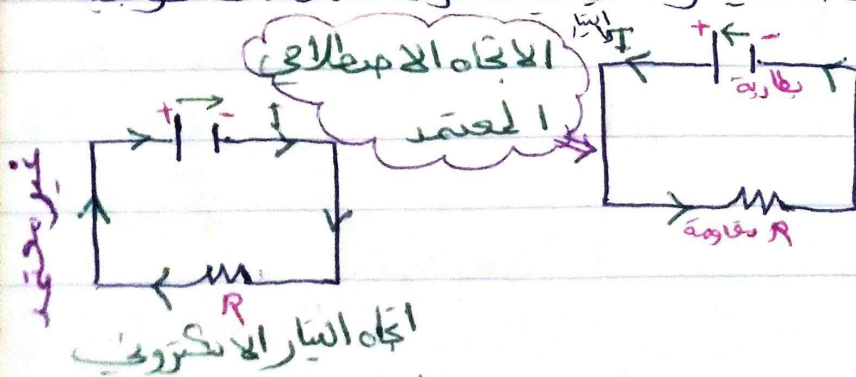 الاتجاه الاصطلاحي
المعتمد
التيار I
+ -
بطارية
R مقاومة
+ -
I
R
اتجاه التيار الالكتروني